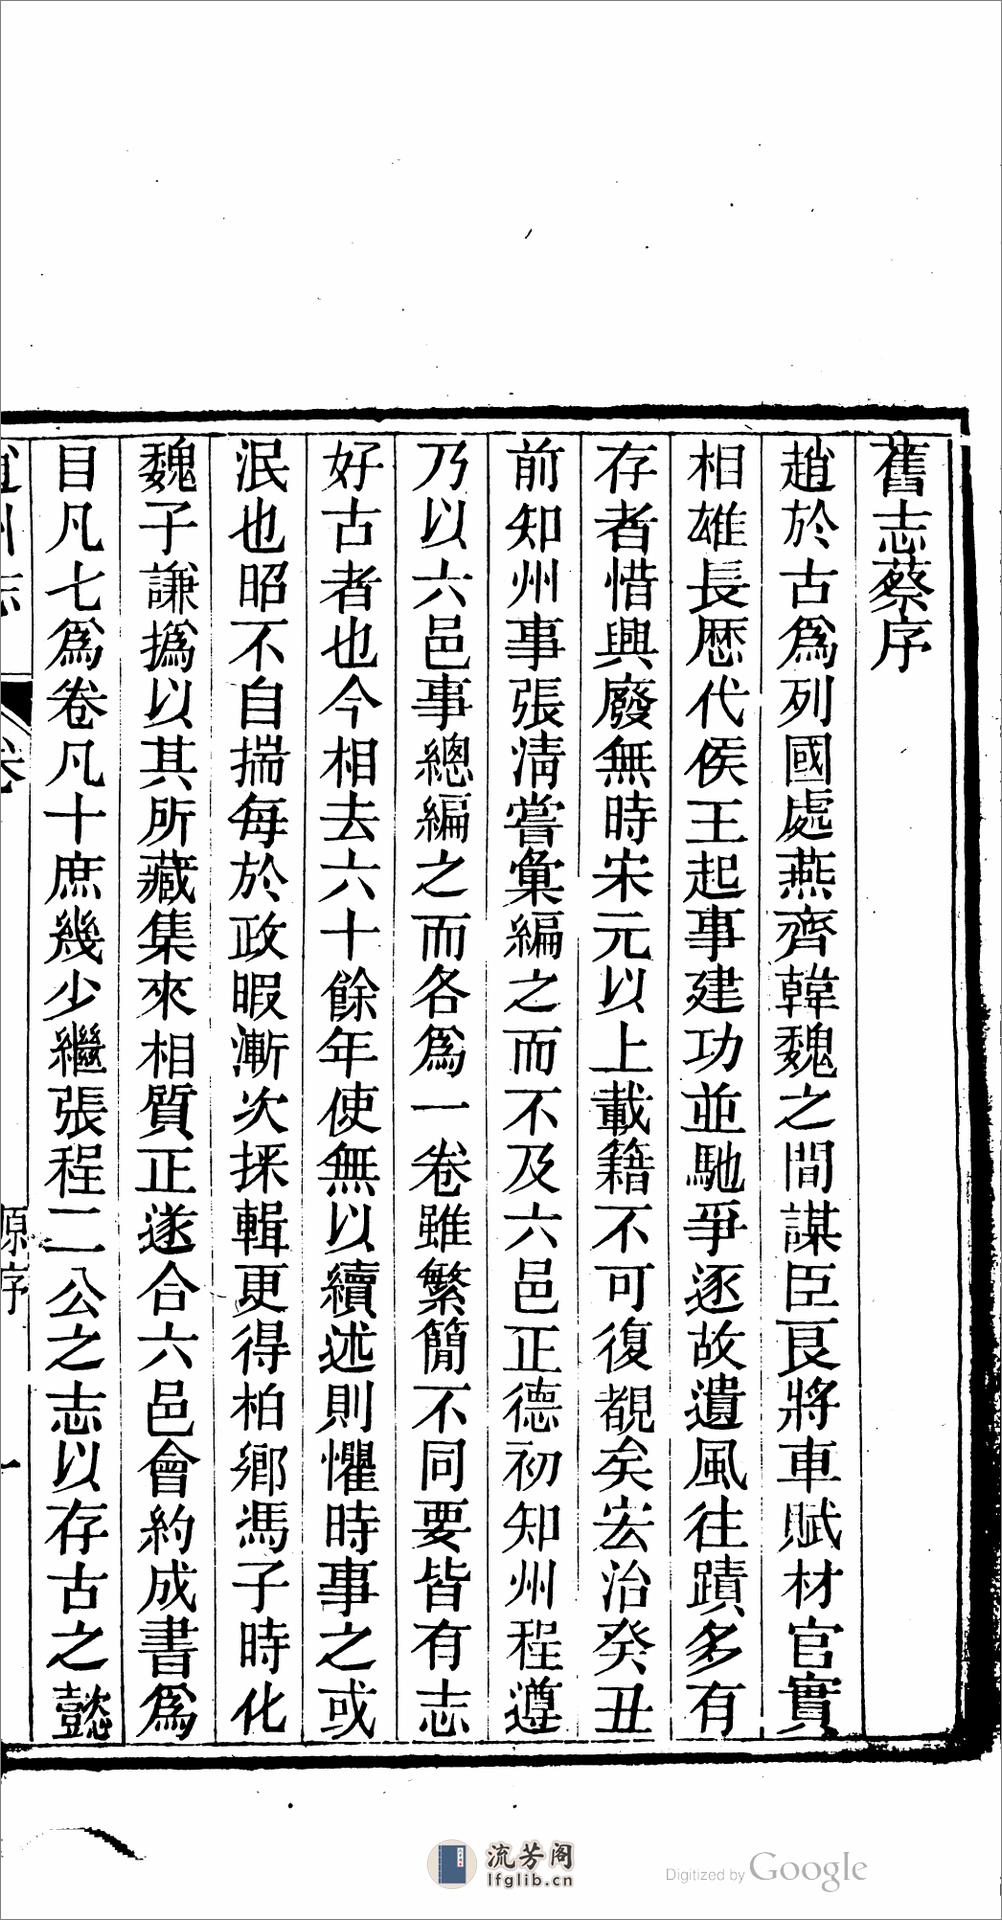 舊志蔡序
趙於古爲列國處燕齊韓魏之間謀臣良將車賦材官實
相雄長歴代侯王起事建功並馳爭逐故遺風往蹟多有
存者惜興廢無時宋元以上載籍不可復覩矣宏治癸丑
前知州事張清嘗彙編之而不及六邑正德初知州程遵
乃以六邑事總編之而各爲一卷雖繁簡不同要皆有志
好古者也今相去六十餘年使無以續述則懼時事之或
泯也昭不自揣每於政暇漸次採輯更得柏鄉馮子時化
魏子謙撝以其所藏集來相質正遂合六邑會約成書爲
目凡七爲卷凡十庶幾少繼張程二公之志以存古之懿
趙州志
卷
原序
一
流芳阁
lfglib.cn
Digitized by Google